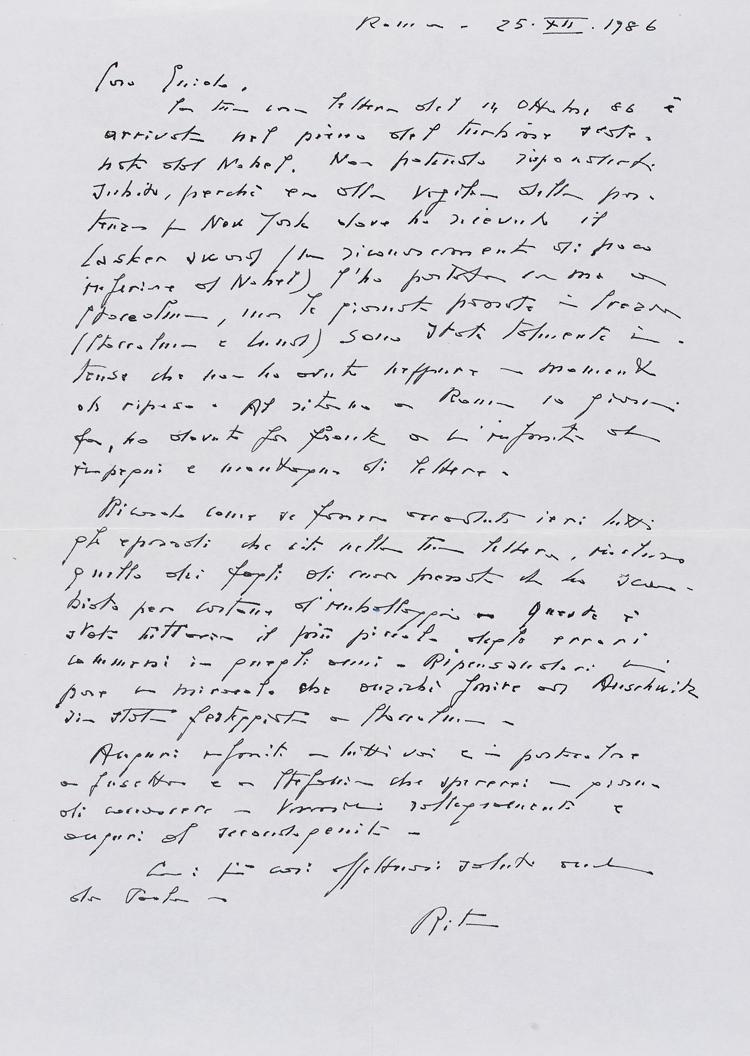 Roma - 25. XII. 1986
Caro Guido,
la tua cara lettera del 14 Ottobre 86 è
arrivata nel pieno del turbine scate-
nato dal Nobel. Non potendo risponderti
subito, perché ero alla vigilia della par-
tenza per New York dove ho ricevuto il
Lasker award (un riconoscimento di poco
inferiore al Nobel) l'ho portata con me a
Stoccolma, ma le giornate passate in Svezia
(Stoccolma e Lund) sono state talmente in-
tense che non ho avuto neppure un momento
di riposo. Al ritorno a Roma 10 giorni
fa, ho dovuto far fronte a un'infinità di
impegni e montagne di lettere.
Ricordo come se fossero accaduti ieri tutti
gli episodi che citi nella tua lettera, incluso
quello dei fogli di carta che ho scam-
biato per costane d'imballaggio. Questo è
stato tuttavia il più piccolo degli errori
commessi in quegli anni. Ripensandoci mi
pare un miracolo che anziché finire ad Auschwitz
sia stata festeggiata a Stoccolma.
Auguri infiniti a tutti voi e in particolare
a e a Stefania che spererei un giorno
di conoscere. Vivissimi rallegramenti e
auguri al secondogenito.
Con i più cari affettuosi saluti anche
da Paola.
Rita